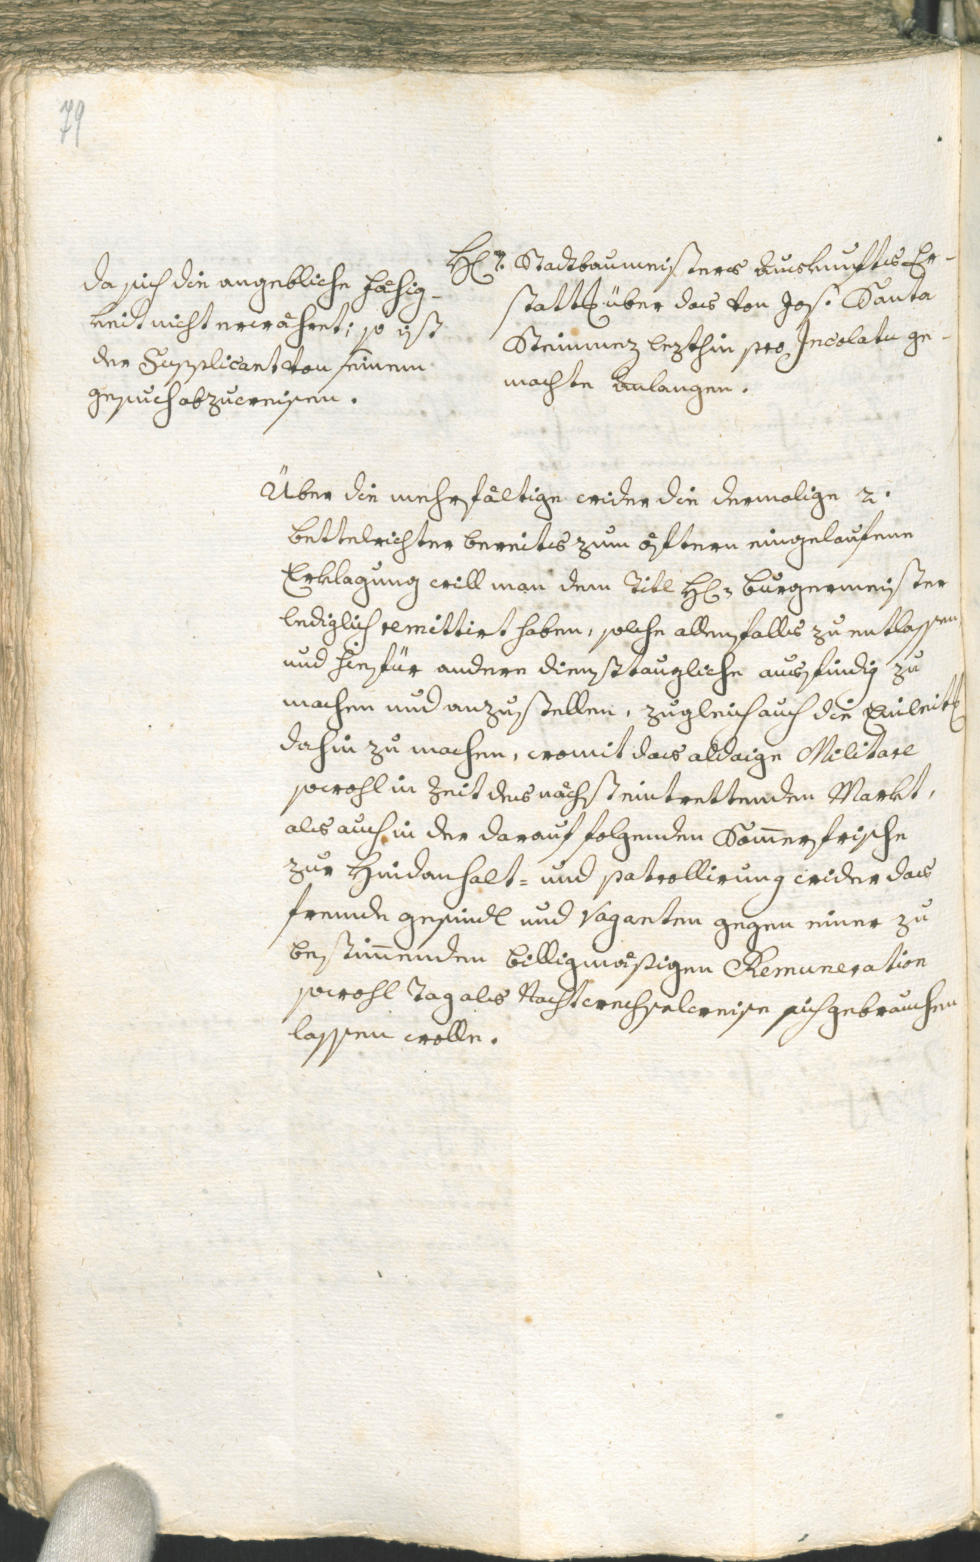 79
Da sich die angebliche Fäehig-
keit nicht erwähret; so ist
der Supplicant von seinem
gesuch abzuweisen.
H: Stadtbaumeisters Auskunfts Er-
statt: über das von Jos: Santa
Steinmez lezthin pro Incolatu ge-
machte Anlangen.
Über die mehrfältige wider die dermalige 2.
bettelrichter bereits zum öftern eingelaufene
Erklagung will man dem Titl H: Burgermeister
lediglich remittirt haben, solche allenfalls zu entlassen
und hinfür andere diensttaugliche ausfindig zu
machen und anzustellen, zugleich auch die Einleit:
dahin zu machen, womit das aldaige Militare
sowohl in Zeit des nächst eintrettenden Markt,
als auch in der darauf folgenden Sommerfrische
zur Hindanhalt- und patrollirung wider das
fremde gesindl und Vaganten gegen einer zu
bestimmenden billigmäßigen Remuneration
sowohl Tag als Nacht wechselweise sich gebrauchen
lassen wolle.